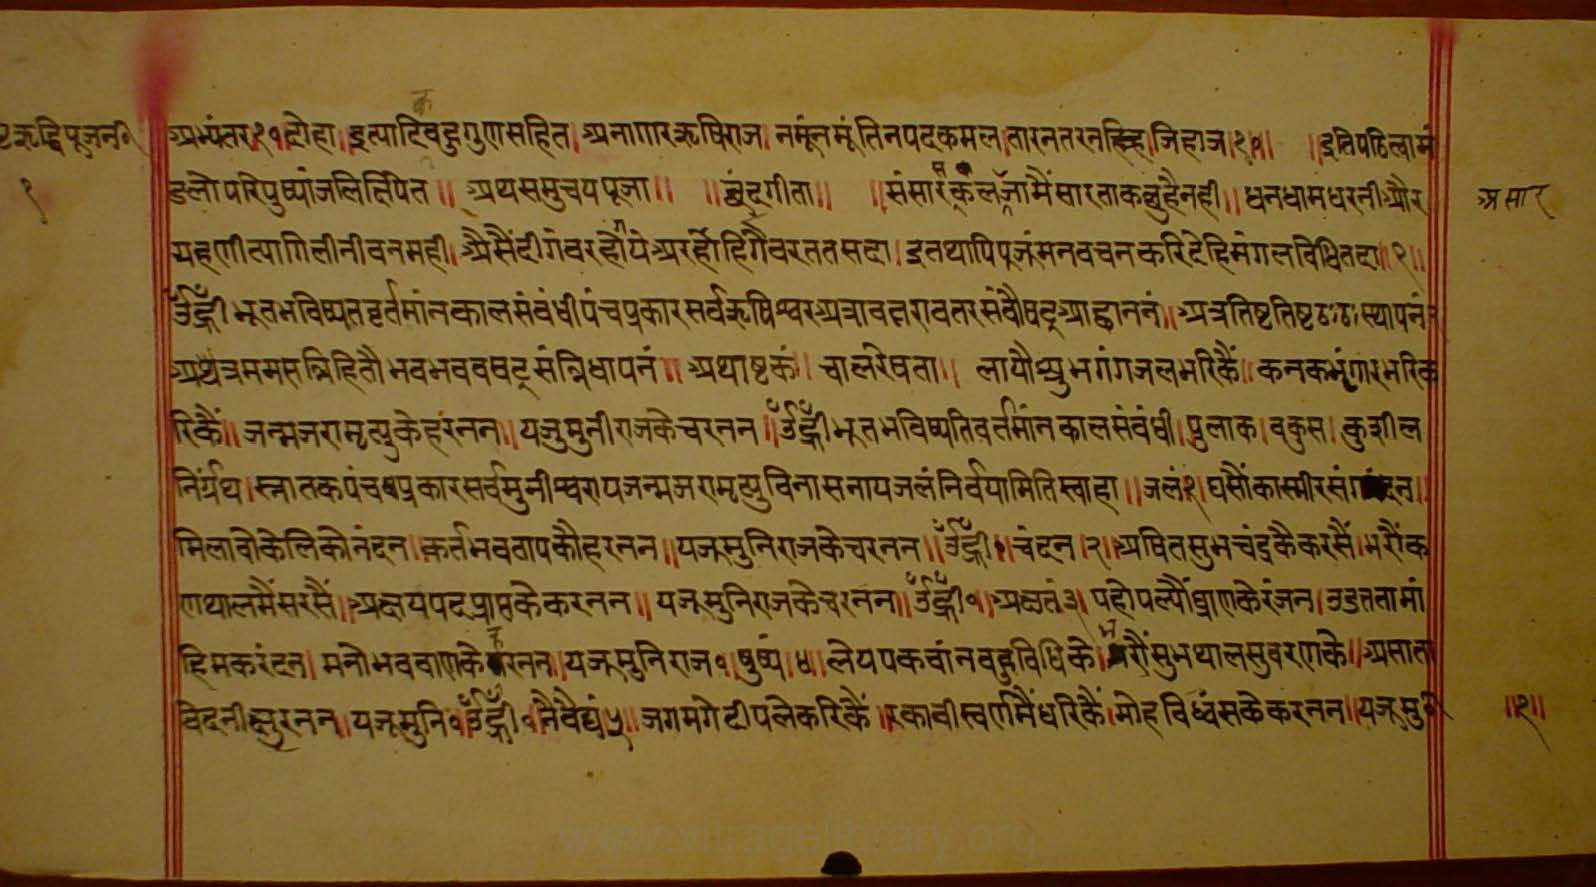 अभ्यंतर १९ दोहा। इत्यादि बहु गुण सहित। अनागार ऋषिराज। नमूं नमूं तिन पद कमल। तारन तरन जिहाज। २०॥ ॥ इति पठित्वा मं
डलोपरि पुष्पांजलि क्षिपेत॥ अथ समुचय पूजा॥ ॥ छंद गीता॥ ॥ संसार सकल मैं सारता कछु है नही॥ धन धाम धरनी और
ग्रहणी त्यागि लीनी वन मही। ऐसैं दीगंबर हो गये अर होहिगै वरतत सदा। इत थापि पूजूं मन वचन करि देहि मंगल विधि तदा॥ १॥
उँ ह्रीँ भूत भविष्यत वर्तमांन काल संबंधी पंच प्रकार सर्व ऋषिश्वर अत्रावतरावतर संवौषट् आह्वाननं॥ अत्र तिष्ट तिष्ट ठः ठः स्थापनं
अथत्र मम सन्निहितौ भव भव वषट् संन्निधापनं॥ अथाष्टकं॥ चाल रेषता॥ लायौ श्युभ गंग जल भरिकैं॥ कनक भृंगार भरिक
रिकैं॥ जन्म जरा मृत्यु के हरनन॥ यजु मुनीराज के चरनन॥ उँ ह्रीँ भूत भविष्यति वर्तमांन काल संबंधी। पुलाक। वकुस। कुशील
निर्ग्रंथ। स्नातक पंच प्रकार सर्व मुनीश्वराय जन्म जरा मृत्यु विनासनाय जलं निर्वपामिति स्वाहा॥ जलं १। घसौं कास्मीर संग चंदन॥
मिलावो केलि को नंदन। कर्त भवताप कौ हरनन॥ यजू मुनिराज के चरनन॥ उँ ह्रीँ॰ चंदन। २। अषित सुभ चंद्र कै करसैं। भरौं क
ण थाल मैं सरसैं॥ अक्षय पद प्राप्त के करनन॥ यजू मुनिराज के चरनन॥ उँ ह्रीँ॰। अक्षतं ३। पहोप ल्यौं घ्राण के रंजन। उडत ता मां
हि मकरंदन। मनो भव वाण के हरनन। यजू मुनिराज॰। पुष्पं। ४। लेय पकवांन बहु विधि के। भरौं सुभ थाल सुवरण के॥ असाता
वेदनी क्षुरनन॥ यजू मुनि॰ उँ ह्रीँ॰ नैवैद्यं ५॥ जगमगे दीप ले करिकैं॥ रकावी स्वर्ण मैं धरिकैं। मोह विध्वंस के करनन॥ यजू मु
ऋद्धि पूजन
१
असार
॥२॥
www.vitragelibrary.org